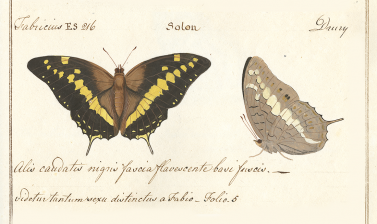 Fabricius ES 216 Solon Drury
Alis caudatis nigris fascia flavescente basi fuscis. —
videtur tantum sexu distinctus a Fabio - Folio. 5